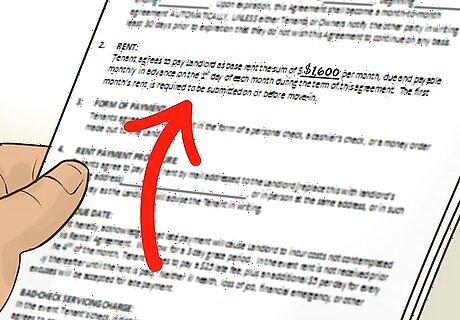 Upon expiration, this Agreement shall become a month-to-month
agreement AUTOMATICALLY, UNLESS either Tenants or Owners notify the other party in writing
least 30 days prior to expiration that they do not wish this Agreement to continue on any basis.
2. RENT:
Tenant agrees to pay Landlord as base rent the sum of $ $1600 per month, due and payable
monthly in advance on the 1st day of each month during the term of this agreement. The first
month's rent is required to be submitted on or before move-in.
3. FORM OF PAYMENT:
Tenants agree in the form of a personal check, a cashier's check, or a money order
made out
4. RENT PAYMENT
agree to pay by mail addressed to the Landlord
address or in person at the same address, or in such
way as the Landlord will advise the Tenant in writing.
DUE DATE:
hereby acknowledge payment will cause Landlord to incur costs not contemplated
Rental Agreement. for a 3 day grace period. In the event rent is not received prior
the 4th of the month, Tenant to pay a $25 late fee, plus an additional $5 per day for every
thereafter until the rent is health, loss of job, financial emergency, or other
excuses will be accepted for late payment.
BAD-CHECK SERVICING CHARGE:
In the event Tenant's check is
agrees to